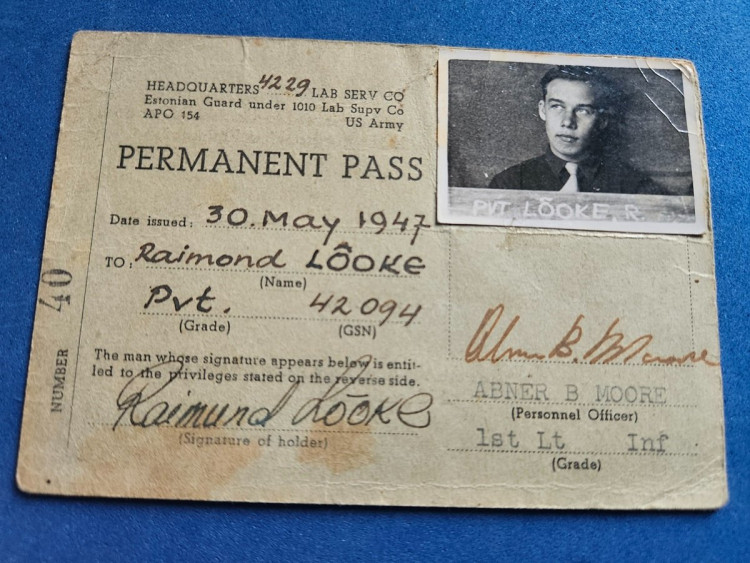 HEADQUARTERS 4229 LAB SERV CO
Estonian Guard under 1010 Lab Supv Co
APO 154 US Army
PERMANENT PASS
Date issued: 30. May 1947
TO: Raimond LÕOKE
(Name)
Pvt. 42094
(Grade) (GSN)
The man whose signature appears below is entit-
led to the privileges stated on the reverse side.
Raimund LÕOKE
(Signature of holder)
NUMBER 40
PVT. LÕOKE, R.
Abner B. Moore
ABNER B MOORE
(Personnel Officer)
1st Lt Inf
(Grade)